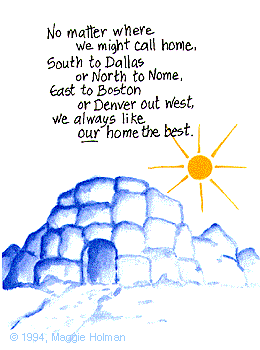 No matter where
we might call home,
South to Dallas
or North to Nome,
East to Boston
or Denver out West,
we always like
our home the best.
© 1994, Maggie Holman